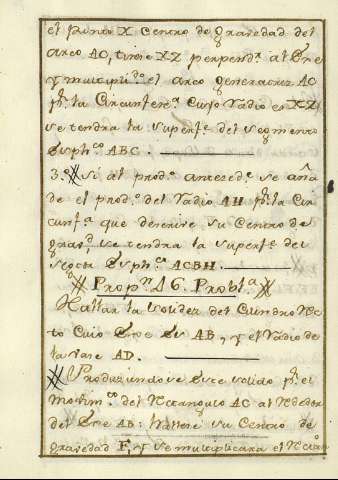 el punto X centro de gravedad del
arco AC, tirese XZ perpendr. al Exe
y multiplicdo. el arco generatriz AC
pr. la Circunferenca. Cuyo radio es XZ
se tendra la superfe. del segmento
Espheco. ABC.
3.o Si al prodo. antecedte. se aña
de el prodo. del radio AH pr. la cir
cunfa. que descrive su Centro de
gravd. se tendra la superfe. del
sector Espheco. ACBH.
Propn. 16. Probla.
Hallar la solidez del Cilindro Rec
to cuio Exe es AB, y el radio de
la vase AD.
Produziendose este solido pr. el
movimto. del Rectangulo AC al rededor
del Exe AB: hallese su Centro de
gravedad F, y se multiplicara el Rectan